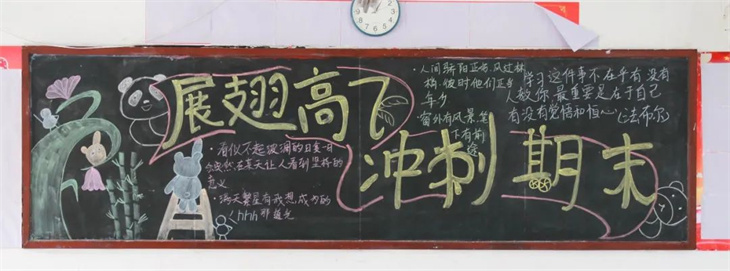 展翅高飞
冲刺期末
·看似不起波澜的日复一日
会突然在某天让人看到坚持的
意义
·满天繁星有我想成为的
那道光
·人间骄阳正好,风过林
梢,彼时他们正当
年少
·窗外有风景,笔
下有前
途
学习这件事不在乎有没有
人教你,最重要是在于自己
有没有觉悟和恒心(法布尔)